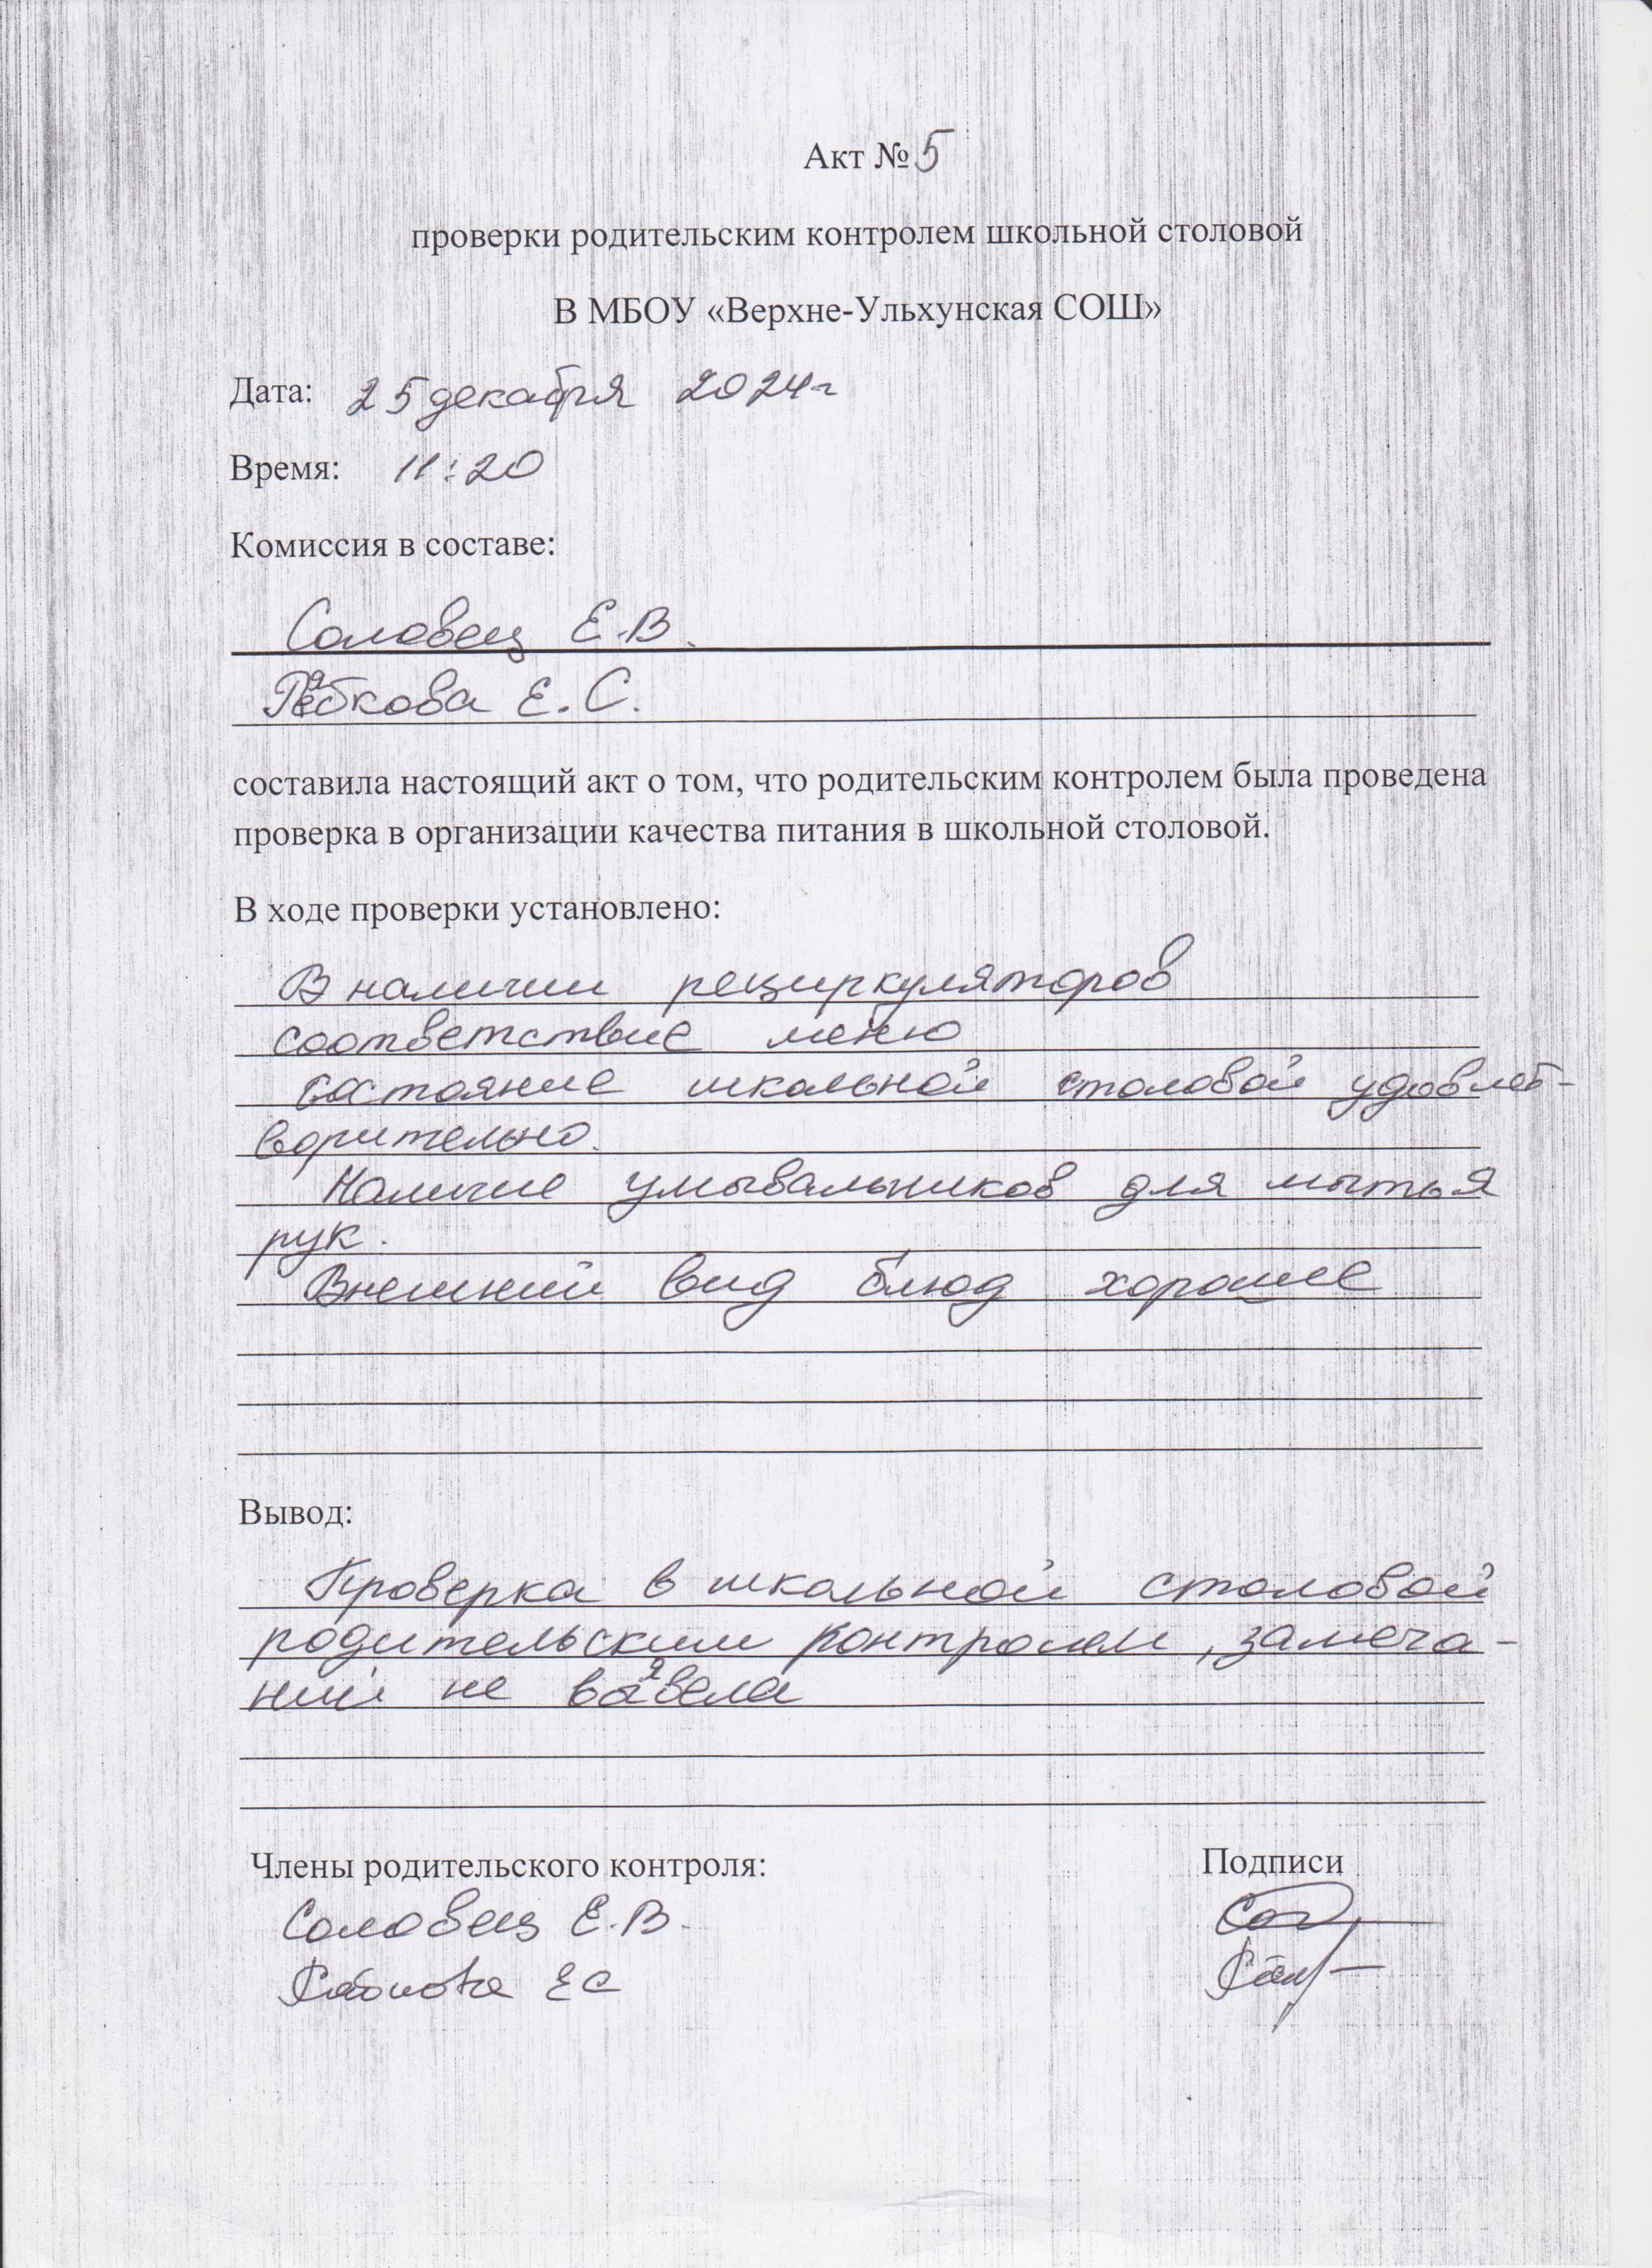 Акт № 5
проверки родительским контролем школьной столовой
В МБОУ «Верхне-Ульхунская СОШ»
Дата: 25 декабря 2024г
Время: 11:20
Комиссия в составе:
Соловец Е.В.
Рябкова Е.С.
составила настоящий акт о том, что родительским контролем была проведена
проверка в организации качества питания в школьной столовой.
В ходе проверки установлено:
В наличии рециркуляторов
соответствие меню
состояние школьной столовой удовлет-
ворительно.
Наличие умывальников для мытья
рук.
Внешний вид блюд хорошие
Вывод:
Проверка в школьной столовой
родительским контролем, замеча-
ний не
Члены родительского контроля: Подписи
Соловец Е.В.
Рябкова ЕС